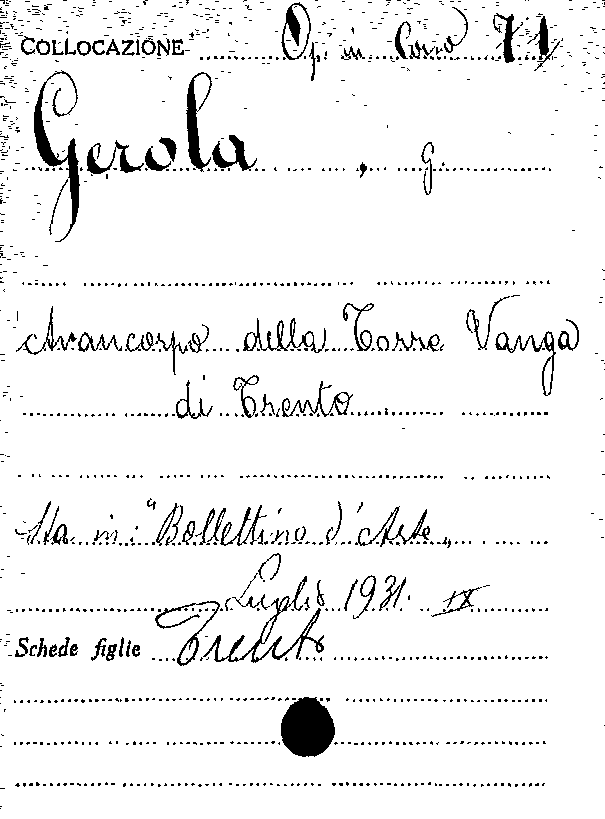 COLLOCAZIONE Op. in Corso 71
Gerola , G.
Avancorpo della Torre Vanga
di Trento
Sta in: "Bollettino d'Arte„
Luglio 1931. IX
Schede figlie Trento